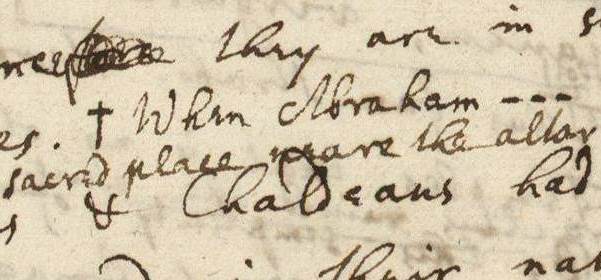 they are in
es. † When Abraham ---
sacred place neare the altar
s & Chaldeans had
in their nat